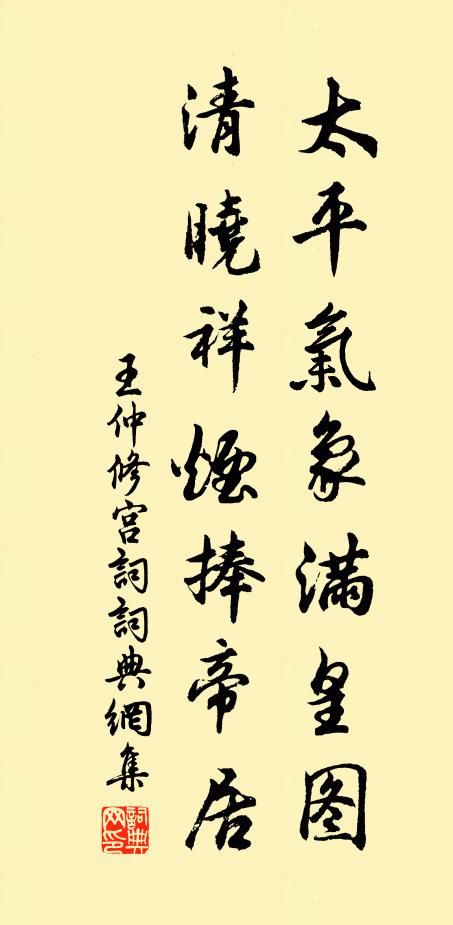 太平氣象滿皇图
清曉祥煙捧帝居
王仲修宫詞詞典網集
詞典網印